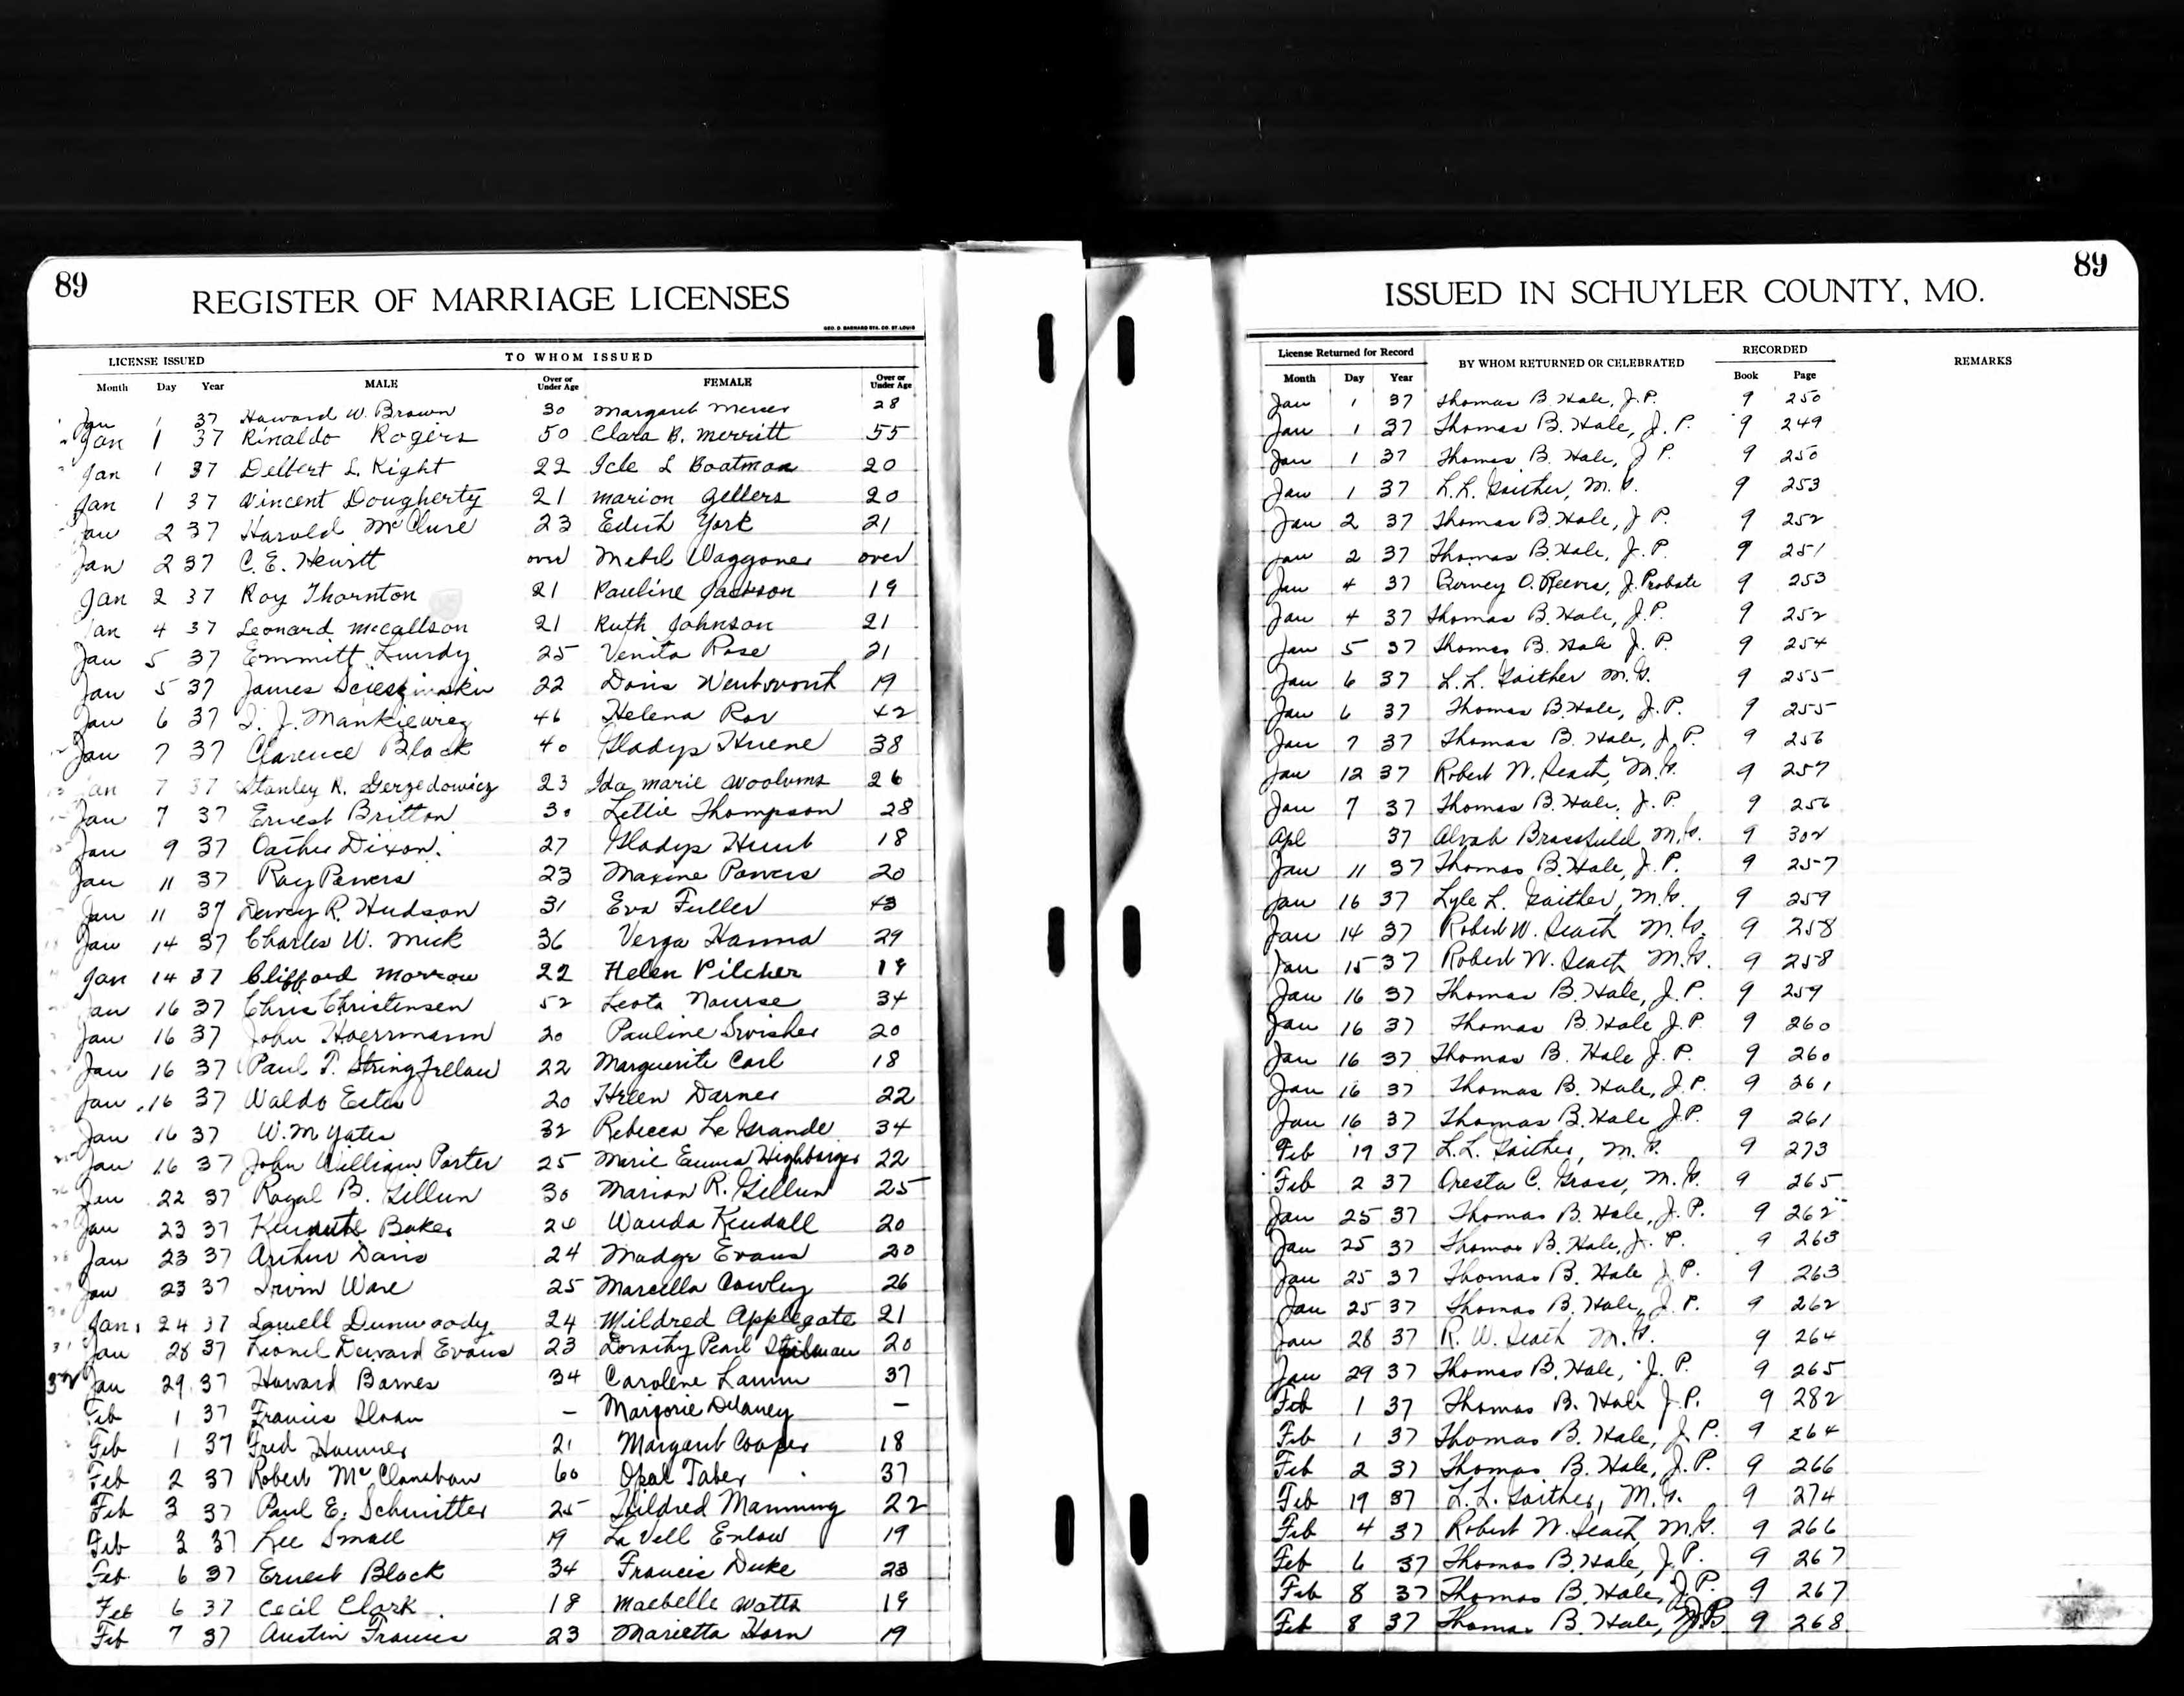 89
REGISTER OF MARRIAGE LICENSES
GEO. D. BARNARD STA. CO. ST. LOUIS
LICENSE ISSUED TO WHOM ISSUED
Month Day Year MALE Over or Under Age FEMALE Over or Under Age
Jan 1 37 Howard W. Brown 30 Margaret Mercer 28
Jan 1 37 Rinaldo Rogers 50 Clara B. Merritt 55
Jan 1 37 Delbert L. Kight 22 Icle L Boatman 20
Jan 1 37 Vincent Dougherty 21 Marion Gellers 20
Jan 2 37 Harold McClure 23 Edith York 21
Jan 2 37 C. E. Hewitt over Mebil Waggoner over
Jan 2 37 Roy Thornton 21 Pauline Jackson 19
Jan 4 37 Leonard McCallson 21 Ruth Johnson 21
Jan 5 37 Emmitt Lundy 25 Venita Rose 21
Jan 5 37 James 22 Doris Wentworth 19
Jan 6 37 Mankiewicz 46 Helena 42
Jan 7 37 Clarence Black 40 Gladys Huene 38
Jan 7 37 Stanley R. Gerzedowicz 23 Ida Marie Woolums 26
Jan 7 37 Ernest Britton 30 Lettie Thompson 28
Jan 9 37 Dixon. 27 Gladys Hunt 18
Jan 11 37 Ray Powers 23 Maxine Powers 20
Jan 11 37 Dewey R. Hudson 31 Eva Fuller 43
Jan 14 37 Charles W. Mick 36 Verga Hanna 29
Jan 14 37 Clifford Morrow 22 Helen Pilcher 19
Jan 16 37 Chris Christensen 52 Leota Nourse 34
Jan 16 37 John Hoerrmann 20 Pauline Swisher 20
Jan 16 37 Paul T. Stringfellow 22 Marguerite Carl 18
Jan 16 37 Waldo Estes 20 Helen Darner 22
Jan 16 37 W. M Yates 32 Rebecca Le Grande 34
25 Jan 16 37 John William Porter 25 Marie Emma Highbarger 22
26 Jan 22 37 Royal B. Gillum 30 Marion R. Gillum 25
27 Jan 23 37 Kenneth Baker 20 Wanda Kendall 20
28 Jan 23 37 Arthur Davis 24 Madge Evans 20
29 Jan 23 37 Irvin Ware 25 Marcella Cowley 26
30 Jan. 24 37 Lowell Dunwoody 24 Mildred Applegate 21
31 Jan 28 37 Lionel Durward Evans 23 Dorothy Pearl 20
32 Jan 29 37 Howard Barnes 34 Carolene Lamm 37
Feb 1 37 Francis Sloan - Marjorie Delaney -
Feb 1 37 Fred Hammer 21 Margaret Cooper 18
Feb 2 37 Robert McClanahan 60 Opal Taber 37
Feb 3 37 Paul E. Schmitter 25 Mildred Manning 22
Feb 3 37 Lee Small 19 La Vell Enlow 19
Feb 6 37 Ernest Black 34 Francis Duke 23
Feb 6 37 Cecil Clark 18 Maebelle Watts 19
Feb 7 37 Austin Frances 23 Marietta Horn 19
89
ISSUED IN SCHUYLER COUNTY, MO.
License Returned for Record BY WHOM RETURNED OR CELEBRATED RECORDED REMARKS
Month Day Year Book Page
Jan 1 37 Thomas B. Hale, J.P. 9 250
Jan 1 37 Thomas B. Hale, J. P. 9 249
Jan 1 37 Thomas B. Hale, J P. 9 250
Jan 1 37 L.L. Gaither, M. G. 9 253
Jan 2 37 Thomas B. Hale, J P. 9 252
Jan 2 37 Thomas B. Hale, J. P. 9 251
Jan 4 37 Berney O. Reeves, J. Probate 9 253
Jan 4 37 Thomas B. Hale, J.P. 9 252
Jan 5 37 Thomas B. Hale J. P. 9 254
Jan 6 37 L.L. Gaither M. G. 9 255
Jan 6 37 Thomas B. Hale, J.P. 9 255
Jan 7 37 Thomas B. Hale, J.P. 9 256
Jan 12 37 Robert W. Seath, M.G. 9 257
Jan 7 37 Thomas B. Hale, J. P. 9 256
Apl 37 Alvah Brassfield M.G. 9 302
Jan 11 37 Thomas B. Hale, J. P. 9 257
Jan 16 37 Lyle L. Gaither, M.G. 9 259
Jan 14 37 Robert W. Seath M.G. 9 258
Jan 15 37 Robert W. Seath M.G. 9 258
Jan 16 37 Thomas B. Hale, J.P. 9 259
Jan 16 37 Thomas B. Hale J.P. 9 260
Jan 16 37 Thomas B. Hale J.P. 9 260
Jan 16 37 Thomas B. Hale, J.P. 9 261
Jan 16 37 Thomas B. Hale J.P. 9 261
Feb 19 37 L.L. Gaither, M. G. 9 273
Feb 2 37 Oresta C. Gross, M.G. 9 265
Jan 25 37 Thomas B. Hale, J.P. 9 262
Jan 25 37 Thomas B. Hale, J. P. 9 263
Jan 25 37 Thomas B. Hale J P. 9 263
Jan 25 37 Thomas B. Hale, J. P. 9 262
Jan 28 37 R. W. Seath M.G. 9 264
Jan 29 37 Thomas B. Hale, J. P. 9 265
Feb 1 37 Thomas B. Hale J.P. 9 282
Feb 1 37 Thomas B. Hale, J.P. 9 264
Feb 2 37 Thomas B. Hale, J.P. 9 266
Feb 19 37 L.L. Gaither, M.G. 9 274
Feb 4 37 Robert W. Seath, M.G. 9 266
Feb 6 37 Thomas B. Hale, J.P. 9 267
Feb 8 37 Thomas B. Hale, J.P. 9 267
Feb 8 37 Thomas B. Hale, J.P. 9 268